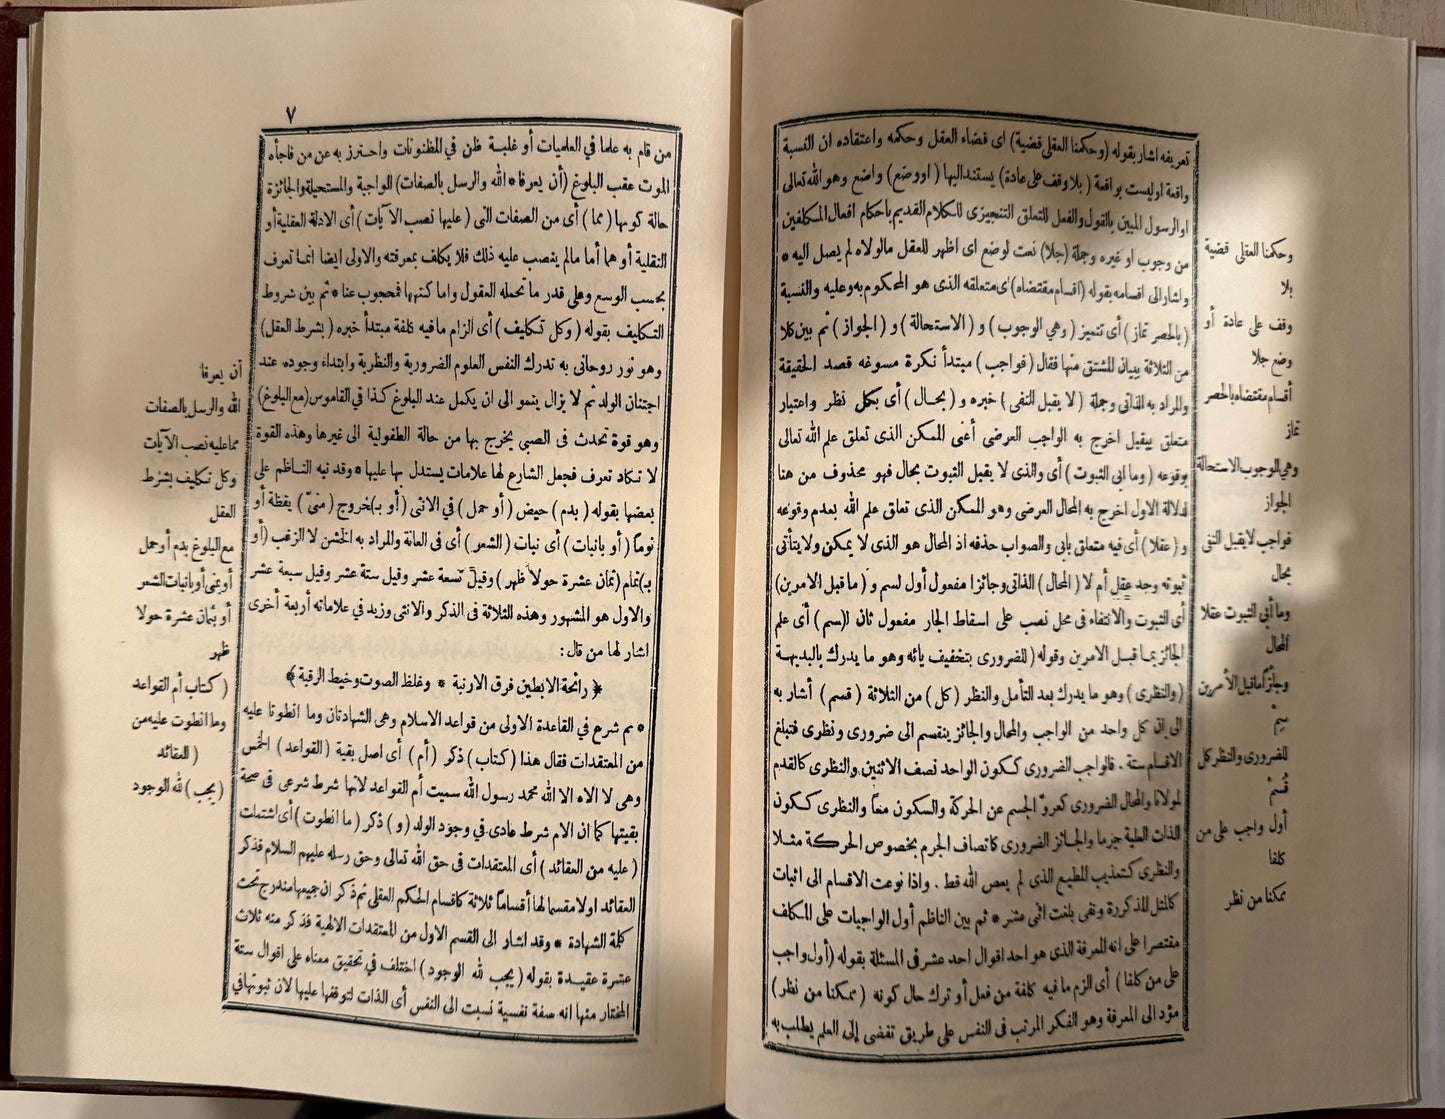 تعريفه اشار بقوله (وحكمنا العقلى قضية) اى قضاء العقل وحكمه واعتقاده ان النسبة
واقعة اوليست بواقعة (بلا وقف على عادة) يستند اليها (او وضع) واضع وهو الله تعالى
او الرسول المبين بالقول والفعل للتعلق التنجيزى للكلام القديم باحكام افعال المكلفين
من وجوب او غيره وجملة (جلا) نعت لوضع اى اظهر للعقل مالولاه لم يصل اليه *
واشار الى اقسامه بقوله (اقسام مقتضاه) اى متعلقه الذى هو المحكوم به وعليه والنسبة
(بالحصر تماز) أى تتميز (وهي الوجوب) و (الاستحالة) و (الجواز) ثم بين كلا
من الثلاثة ببيان المشتق منها فقال (فواجب) مبتدأ نكرة مسوغه قصد الحقيقة
والمراد به الذاتى وجملة (لا يقبل النفى) خبره و (بحال) أى بكل نظر واعتبار
متعلق بيقبل اخرج به الواجب العرضى أعنى الممكن الذى تعلق علم الله تعالى
بوقوعه (وما ابى الثبوت) أى والذى لا يقبل الثبوت بحال فهو محذوف من هنا
لدلالة الاول اخرج به المحال العرضى وهو الممكن الذى تعلق علم الله بعدم وقوعه
و (عقلا) أى فيه متعلق بابى والصواب حذفه اذ المحال هو الذى لا يمكن ولا يتأتى
ثبوته وجد عقل أم لا (المحال) الذاتى وجائزا مفعول أول لسم و (ما قبل الامرين)
أى الثبوت والانتفاء فى محل نصب على اسقاط الجار مفعول ثان لـ(سم) أى علم
الجائز بما قبل الامرين وقوله (للضرورى بتخفيف يائه وهو ما يدرك بالبديهة
(والنظرى) وهو ما يدرك بعد التأمل والنظر (كل) من الثلاثة (قسم) أشار به
الى ان كل واحد من الواجب والمحال والجائز ينقسم الى ضرورى ونظرى فتبلغ
الاقسام ستة . فالواجب الضرورى ككون الواحد نصف الاثنين والنظرى كالقدم
لمولانا والمحال الضرورى كعروّ الجسم عن الحركة والسكون معاً والنظرى ككون
الذات العلية جرما والجائز الضرورى كاتصاف الجرم بخصوص الحركة مثلا
والنظرى كتعذيب المطيع الذى لم يعص الله قط . واذا نوعت الاقسام الى اثبات
كالمثل المذكورة ونفى بلغت اثنى عشر * ثم بين الناظم أول الواجبات على المكلف
مقتصرا على انه المعرفة الذى هو احد اقوال احد عشر فى المسئلة بقوله (أول واجب
على من كلفا) أى الزم ما فيه كلفة من فعل أو ترك حال كونه (ممكنا من نظر)
مؤد الى المعرفة وهو الفكر المرتب فى النفس على طريق تفضى الى العلم يطلب به
وحكمنا العقلى قضية
بلا
وقف على عادة أو
وضع جلا
أقسام مقتضاه بالحصر
تماز
وهي الوجوب الاستحالة
الجواز
فواجب لا يقبل النفى
بحال
وما أبى الثبوت عقلا
المحال
وجائزاً ما قبل الأمرين
سِمْ
للضرورى والنظر كل
قُسِمْ
أول واجب على من
كلفا
ممكنا من نظر
٧
من قام به علما في العلميات أو غلبة ظن في المظنونات واحترز به عن من فاجأه
الموت عقب البلوغ (أن يعرفا * الله والرسل بالصفات) الواجبة والمستحيلة والجائزة
حالة كونها (مما) أى من الصفات التى (عليها نصب الآيات) أى الادلة العقلية أو
النقلية أو هما أما مالم ينصب عليه ذلك فلا يكلف بمعرفته والاولى ايضا انما تعرف
بحسب الوسع وعلى قدر ما تحمله العقول واما كنهها فمحجوب عنا * ثم بين شروط
التكليف بقوله (وكل تكليف) أى الزام ما فيه كلفة مبتدأ خبره (بشرط العقل)
وهو نور روحانى به تدرك النفس العلوم الضرورية والنظرية وابتداء وجوده عند
اجتنان الولد ثم لا يزال ينمو الى ان يكمل عند البلوغ كذا في القاموس (مع البلوغ)
وهو قوة تحدث فى الصبي يخرج بها من حالة الطفولية الى غيرها وهذه القوة
لا تكاد تعرف فجعل الشارع لها علامات يستدل بها عليها * وقد نبه الناظم على
بعضها بقوله (بدم) حيض (أو حمل) في الانثى (أو بـ)خروج (منىّ) يقظة أو
نوماً (أو بانبات) أى نبات (الشعر) أى فى العانة والمراد به الخشن لا الزغب (أو
بـ)تمام (ثمان عشرة حولا ظهر) وقيل تسعة عشر وقيل ستة عشر وقيل سبعة عشر
والاول هو المشهور وهذه الثلاثة فى الذكر والانثى وزيد في علاماته أربعة أخرى
اشار لها من قال :
﴿ رائحة الابطين فرق الارنبة * وغلظ الصوت وخيط الرقبة ﴾
* ثم شرع في القاعدة الاولى من قواعد الاسلام وهى الشهادتان وما انطوتا عليه
من المعتقدات فقال هذا (كتاب) ذكر (أم) أى اصل بقية (القواعد) الخمس
وهى لا الاه الا الله محمد رسول الله سميت أم القواعد لانها شرط شرعى فى صحة
بقيتها كما ان الام شرط عادى فى وجود الولد (و) ذكر (ما انطوت) أى اشتملت
(عليه من العقائد) أى المعتقدات فى حق الله تعالى وحق رسله عليهم السلام فذكر
العقائد اولا مقسما لها أقساماً ثلاثة كاقسام الحكم العقلى ثم ذكر ان جميعها مندرج تحت
كلمة الشهادة * وقد اشار الى القسم الاول من المعتقدات الالهية فذكر منه ثلاث
عشرة عقيدة بقوله (يجب لله الوجود) اختلف في تحقيق معناه على اقوال ستة
المختار منها انه صفة نفسية نسبت الى النفس أى الذات لتوقفها عليها لان ثبوتها في
أن يعرفا
الله والرسل بالصفات
مما عليه نصب الآيات
وكل تكليف بشرط
العقل
مع البلوغ بدم أو حمل
أو بمنى أو بانبات الشعر
أو بثمان عشرة حولا
ظهر
(كتاب أم القواعد
وما انطوت عليه من
العقائد)
(يجب) لله الوجود